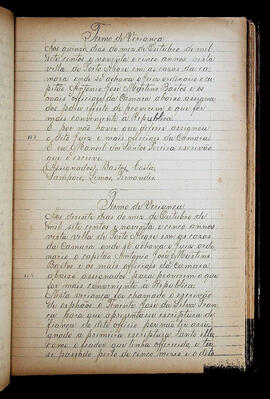 Termo de Veriança
Aos quinze dias do mez de Outubro de mil
sete centos e noventa e cinco annos nesta
villa de Porto Alegre em as casas da ca-
mara onde se achava o juiz ordinario e ca-
pitão Antonio José Martins Bastos e os
mais officiaes da Camara abaixo assigna-
dos para effeito de proverem o que for
mais conveniente á Republica.
E por não haver que
dito Juiz e mais officiaes da Camara.
E eu Manoel dos Santos escrivão
que o escrevi.
Assignados, Bastos, Costa,
Sampaio, Lemos, Fernandes
Termo de Veriança
Aos trinta dias do mez de Outubro de
mil sete centos e noventa e cinco annos
nesta villa de Porto Alegre em as casas
da Camara onde se achava o juiz ordi-
nario o capitão Antonio José Martins
Bastos e os mais officiaes da Camara
abaixo assignados para proverem o que
for mais conveniente á Republica.
Nesta veriança foi chamado o escrivão
de orphãos o Tenente José da Silva Fran-
ça para que apresentasse escriptura de
fiança do dito officio por não ter assig-
nado a primeira escriptura tanto elle
como o fiador que tinha offerecido e ter-
se passado perto de cinco mezes e o dito